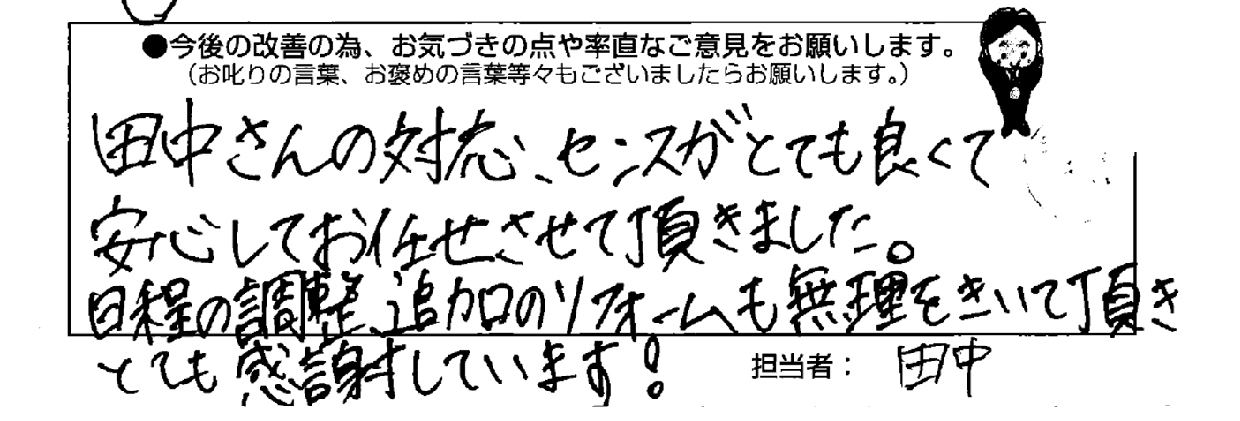 ●今後の改善の為、お気づきの点や率直なご意見をお願いします。
（お叱りの言葉、お褒めの言葉等々もございましたらお願いします。）
田中さんの対応、センスがとても良くて
安心してお任せさせて頂きました。
日程の調整、追加のリフォームも無理をきいて頂き
とても感謝しています！
担当者： 田中